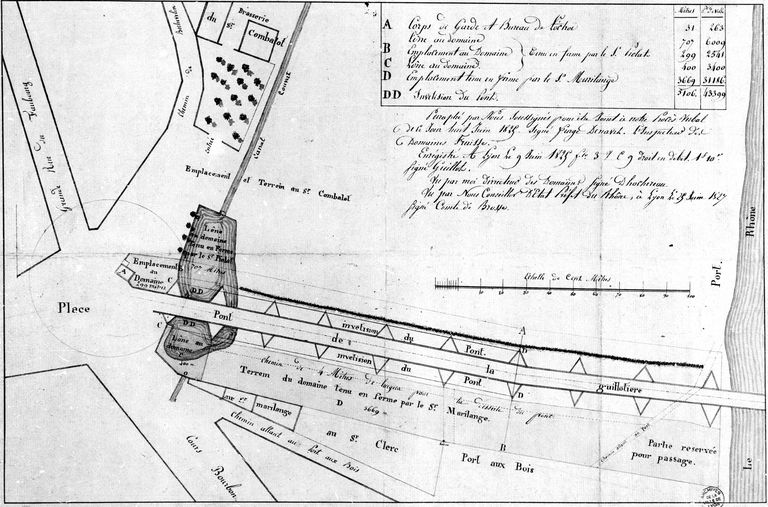 Mètres
A Corps de Garde et Bureau de l'octroi 31 263
Lône au domaine 707 6009
B Emplacement au Domaine } tenu en ferme par le Sr. 299 2541
C Lône au domaine 400 3400
D Emplacement tenu en ferme par le Sr. Marilange 3669 31186
DD Invetison du Pont. 5106 43399
Paraphé par Nous Soussignés pour être
de ce Jour huit Juin 1825 Signé
Domaines
Enregistré à Lyon le 9 Juin 1825
Signé Guillot
Vu par moi Directeur des Domaines Signé
Vu par Nous Conseiller d'Etat Préfet du Rhône, à Lyon le Juin
Signé Comte de Brosse.
Echelle de Cent Mètres
10 20 30 40 50 60 70 80 90 100
Brasserie
du Sr.
Combalot
Chemin de
Grande Rue du Faubourg
Canal
Emplacement et Terrein au Sr. Combalot
Lône
au domaine
tenu en Ferme
par le Sr.
707 Mètres
Emplacement
au
Domaine
299 mètres
A
C
Place
DD
DD
C
Lône au
domaine
400
Pont de la guillotière
invetison du Pont.
invetison du Pont
A
D
D
B
chemin de 4 Mètres de largeur pour la Desserte du pont
Terrein du domaine tenu en ferme par le Sr. Marilange.
D 3669
au Sr.
marilange
au Sr. Clerc
Port aux Bois
Chemin allant au Port aux Bois
Cours Bourbon
Partie reservée
pour passage.
Port.
Le Rhône